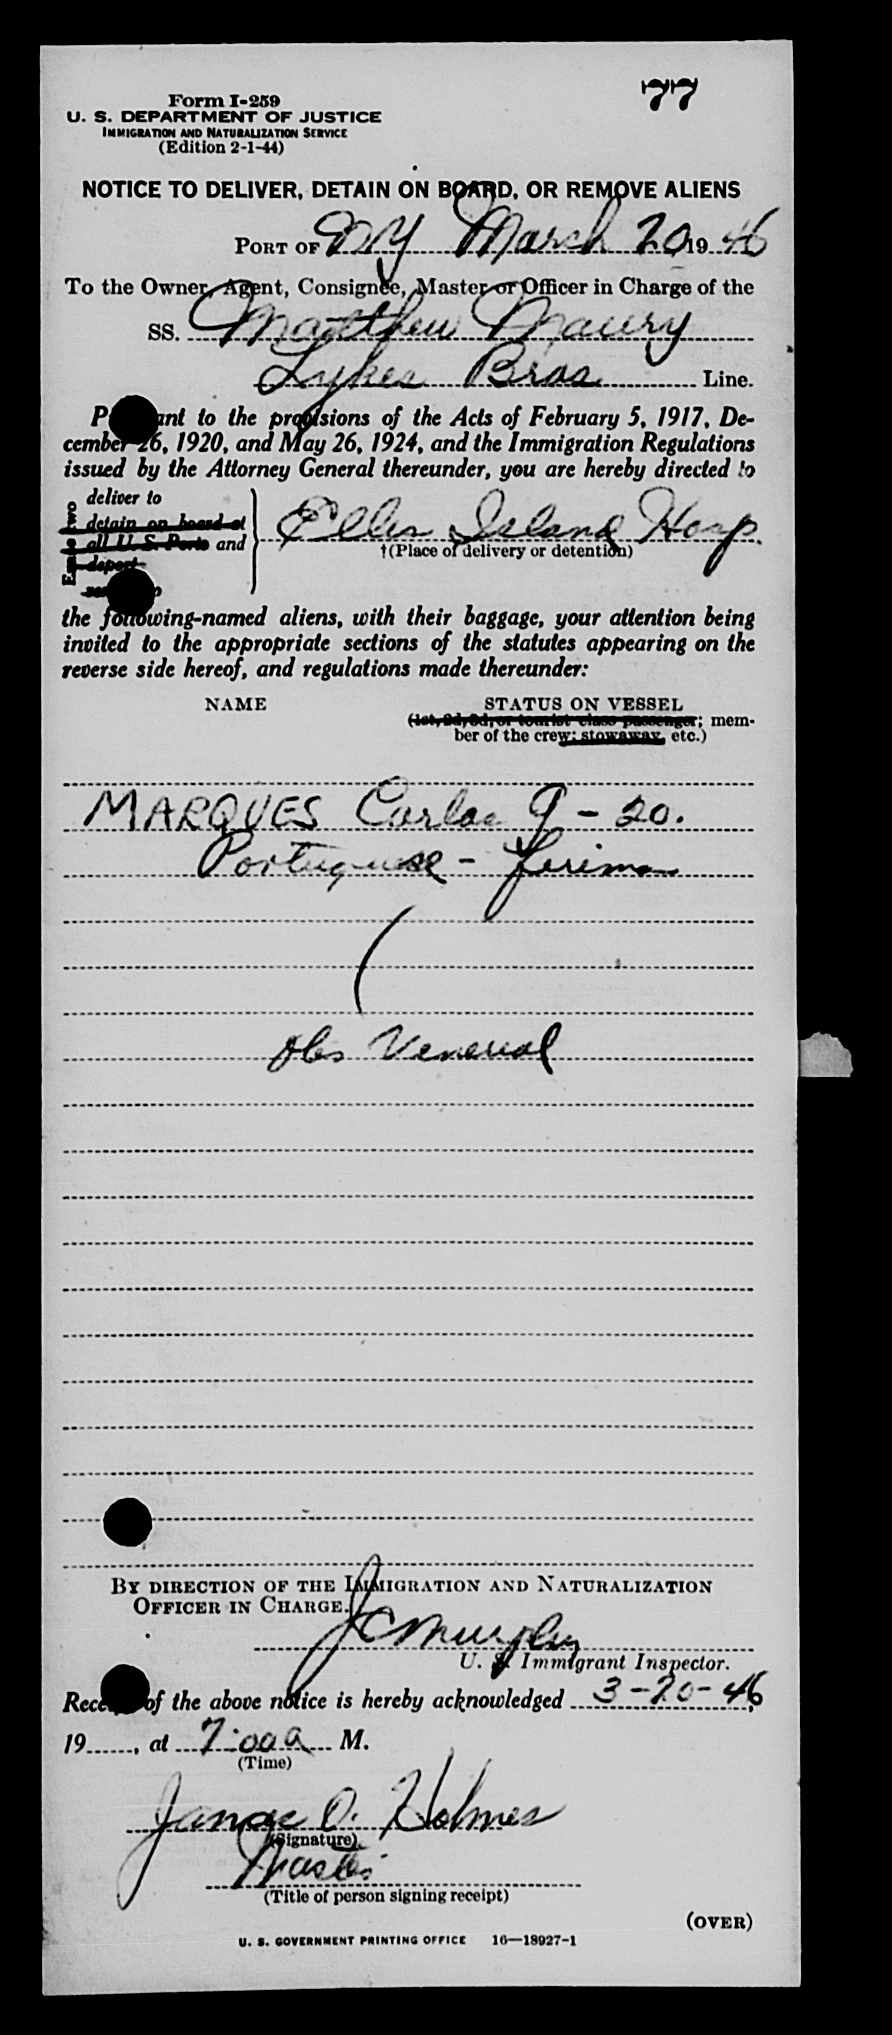 77
Form I-259
U. S. DEPARTMENT OF JUSTICE
IMMIGRATION AND NATURALIZATION SERVICE
(Edition 2-1-44)
NOTICE TO DELIVER, DETAIN ON BOARD, OR REMOVE ALIENS
PORT OF NY March 20, 1946
To the Owner, Agent, Consignee, Master or Officer in Charge of the
SS. Matthew Maury
Lykes Bros Line.
P ant to the provisions of the Acts of February 5, 1917, De-
cember 26, 1920, and May 26, 1924, and the Immigration Regulations
issued by the Attorney General thereunder, you are hereby directed to
deliver to
detain on board at
all U. S. Ports and
deport
Ellis Island Hosp.
†(Place of delivery or detention)
the following-named aliens, with their baggage, your attention being
invited to the appropriate sections of the statutes appearing on the
reverse side hereof, and regulations made thereunder:
NAME STATUS ON VESSEL
(1st, 2d, 3d, or tourist class passenger; mem-
ber of the crew; stowaway, etc.)
MARQUES Carlos - 20.
Portuguese - Fireman
Obs Venereal
BY DIRECTION OF THE IMMIGRATION AND NATURALIZATION
OFFICER IN CHARGE.
J C Murphy
U. S. Immigrant Inspector.
Rece of the above notice is hereby acknowledged 3-20-46,
19......, at 7:00 a M.
(Time)
James O. Holmes
(Signature)
Master
(Title of person signing receipt)
(OVER)
U. S. GOVERNMENT PRINTING OFFICE 16—18927-1